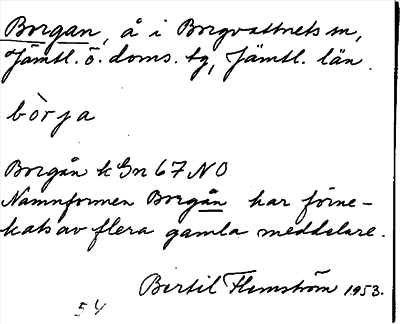 Borgan, å i Borgvattnets sn,
Jämtl. ö. doms. tg, Jämtl. län.
bòrja
Borgån k Gn 67 NO
Namnformen Borgån har förne-
kats av flera gamla meddelare.
Bertil Flemström 1953.
54